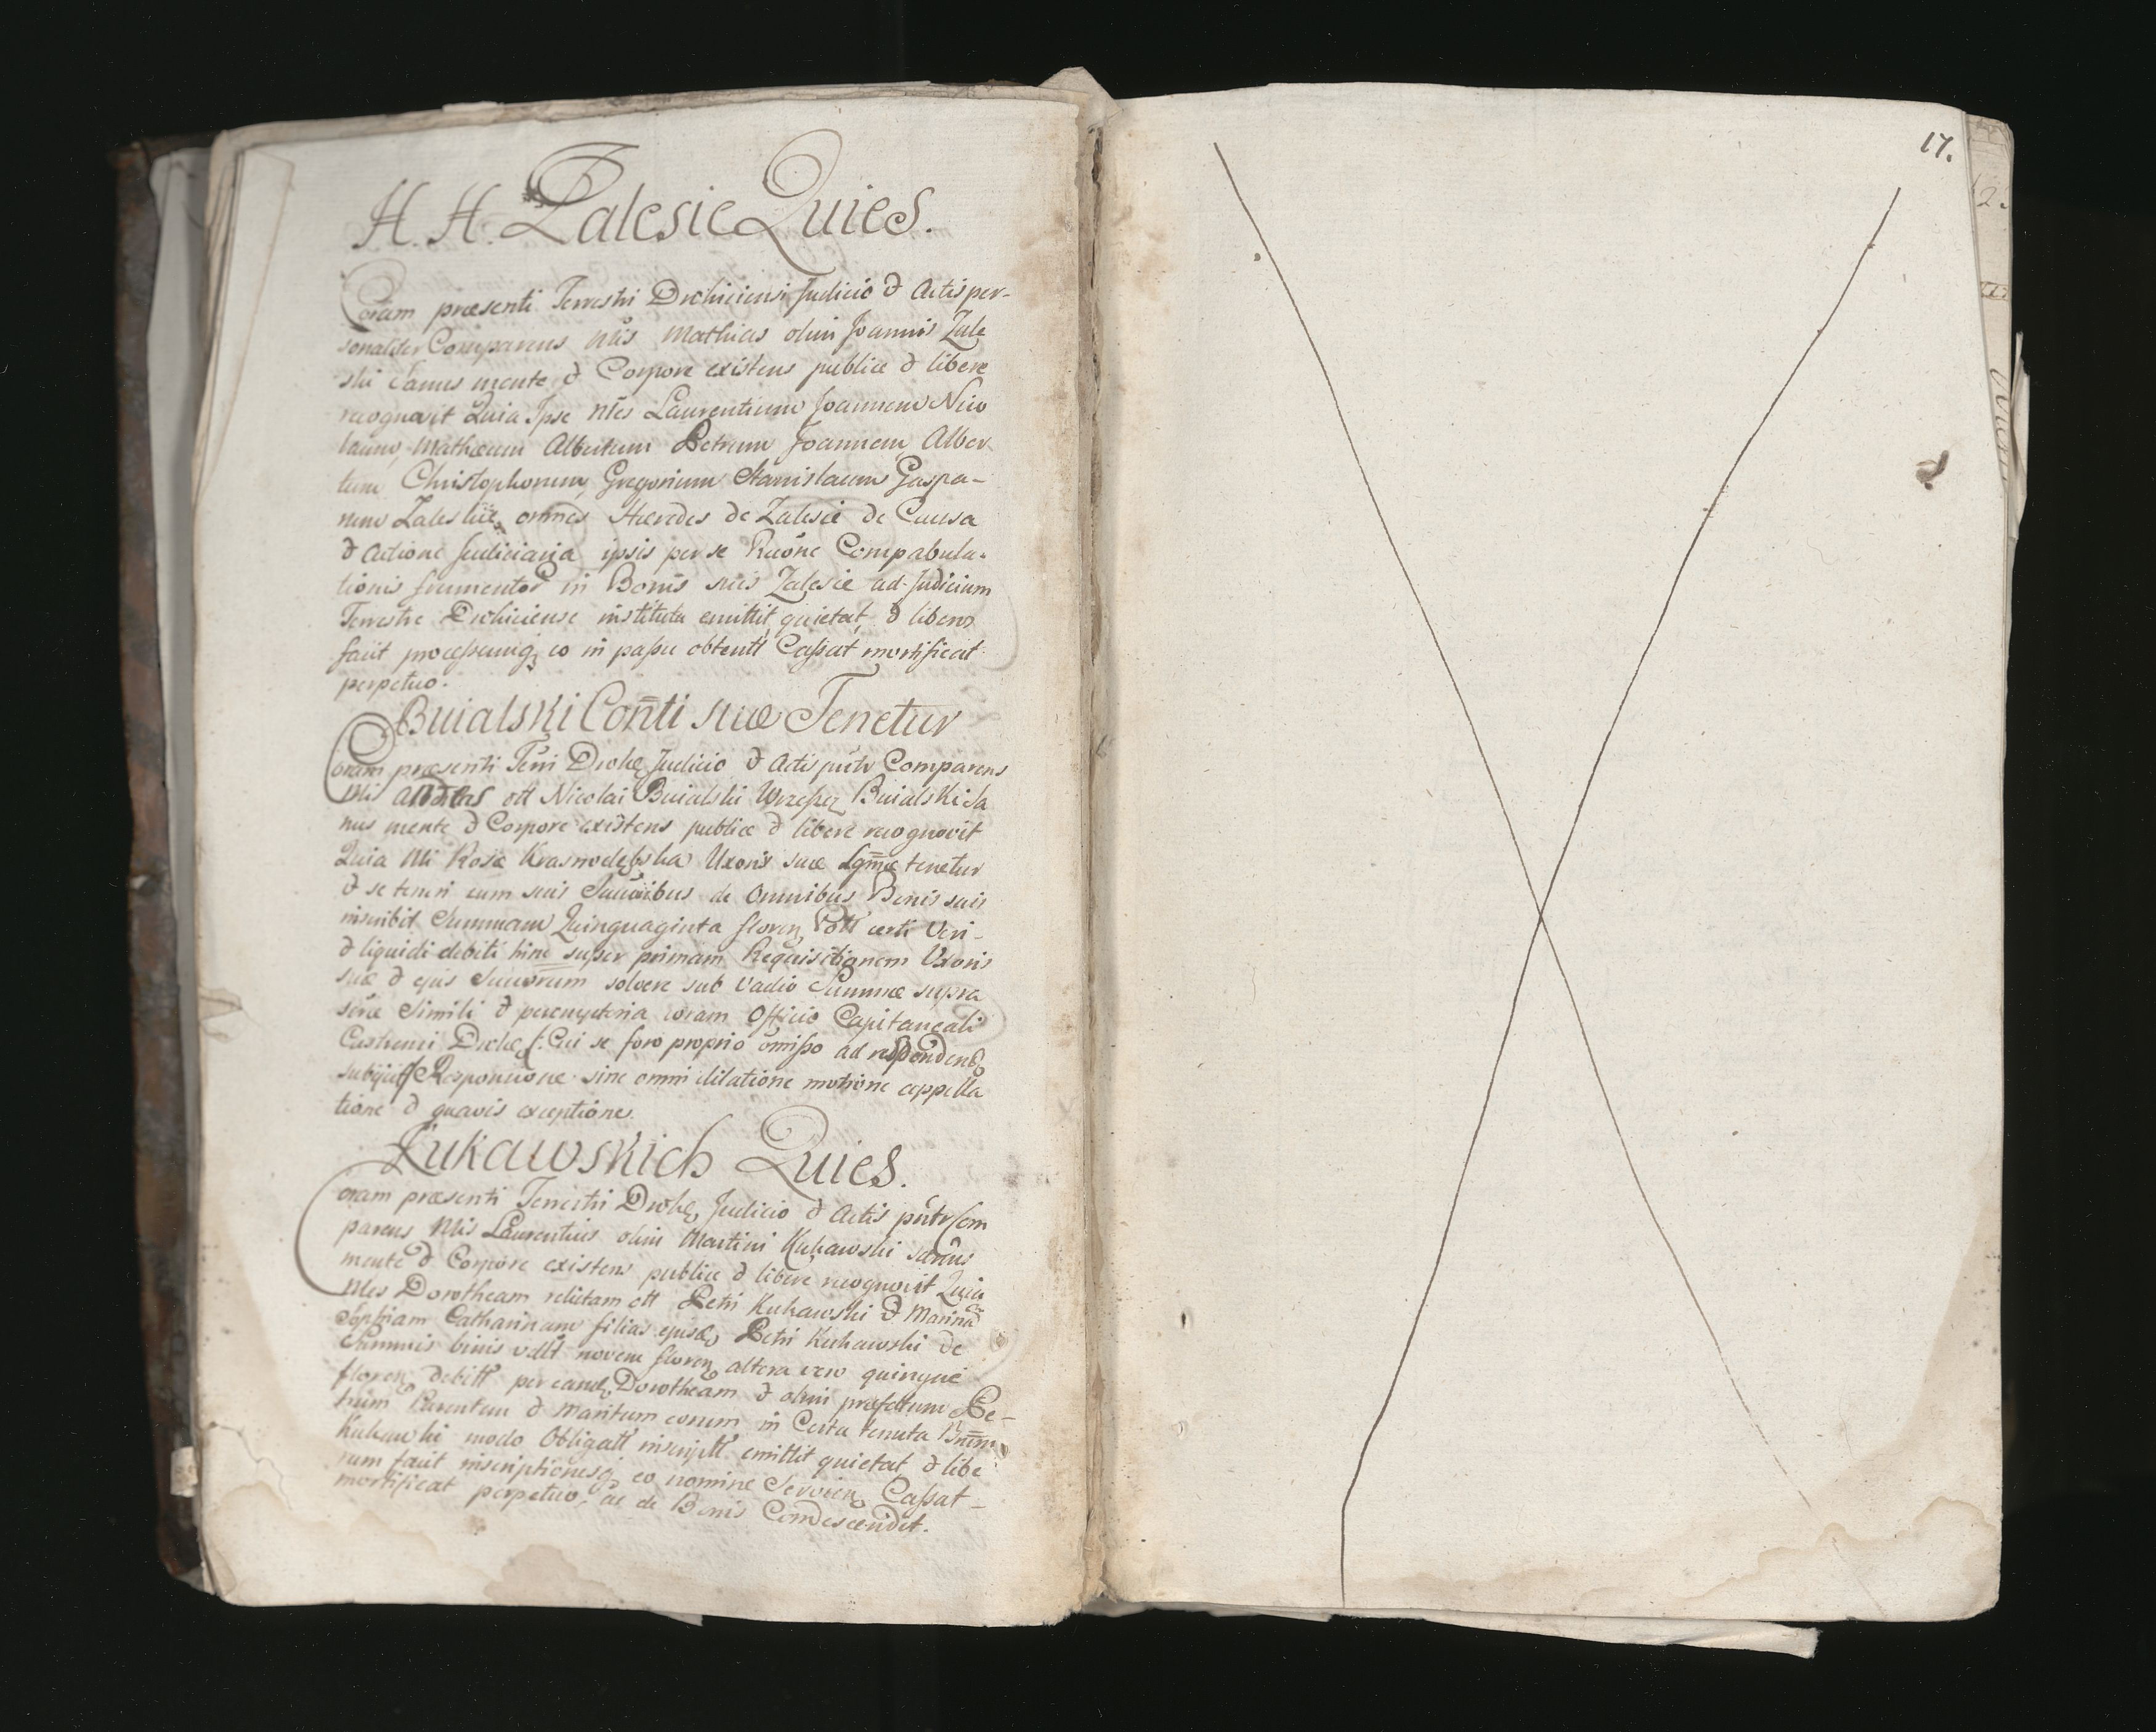 H. H. Zalesie Quies.
Coram præsenti Terrestri Drohiciensi Judicio & Actis per-
sonaliter Comparens Nlis Mathias olim Joannis Zale
ski Sanus mente & Corpore existens publice & libere
recognovit Quia Ipse Nles Laurentium Joannem Nico
laum, Mathæum Albertum Petrum Joannem, Alber
tum Christophorum, Gregorium Stanislaum Gaspa-
rum Zaleskie, omnes Hæredes de Zalesie de Causa
& Actione Judiciaria ipsis per se Raõne Compabula-
tionis frumentor in Bonis suis Zalesie ad Judicium
Terrestre Drohiciense instituta emittit, quietat, & liberos
facit processumq, eo in passu obtentt Cassat mortificat
perpetuo.
Buialski Con̄ti suæ Tenetur
Coram præsenti Terri Drohc̄ Judicio & Actis pńtr Comparens
Nlis olt Nicolai Buialski Buialski Sa
nus mente & Corpore existens publice & libere recognovit
Quia Nli Rosæ Krasnodębska Uxoris suæ Lgm̄æ tenetur
& se teneri cum suis Succoribus de Omnibus Bonis suis
inscribit Summam Quinquaginta floren, Poll certi Veri-
& liquidi debiti hinc super primam Requisitionem Uxoris
suæ & ejus Succorum solvere sub Vadio Summæ supra
Simili & peremptoria coram Officio Capitaneali
Castrensi Drohc̄ /: Cui se foro proprio omisso ad respondend,
subijcit :/ Responsione sine omni dilatione motione appella
tione & quavis exceptione.
Kukawskich Quies.
Coram præsenti Terrestri Drohc̄, Judicio & Actis pńtr Com
parens Nlis Laurentius olim Martini Kukawski sanus
mente & Corpore existens publice & libere recognovit Quia
Nles Dorotheam relictam olt Petri Kukawski & Marina ac
Sophiam Catharinam filias ejusd, Petri Kukawski de
Summis binis vdlt novem floren, altera vero quinque
floren, debitt per eand, Dorotheam & olim præfatum Pe-
trum Parentem & Maritum eorum in Certa tenuta Bn̄rm
Kukawski modo Obligatt inscriptt emittit quietat & libe
rum facit inscriptionesq, eo nomine Servien, Cassat-
mortificat perpetuo, ac de Bonis Condescendit.
17.